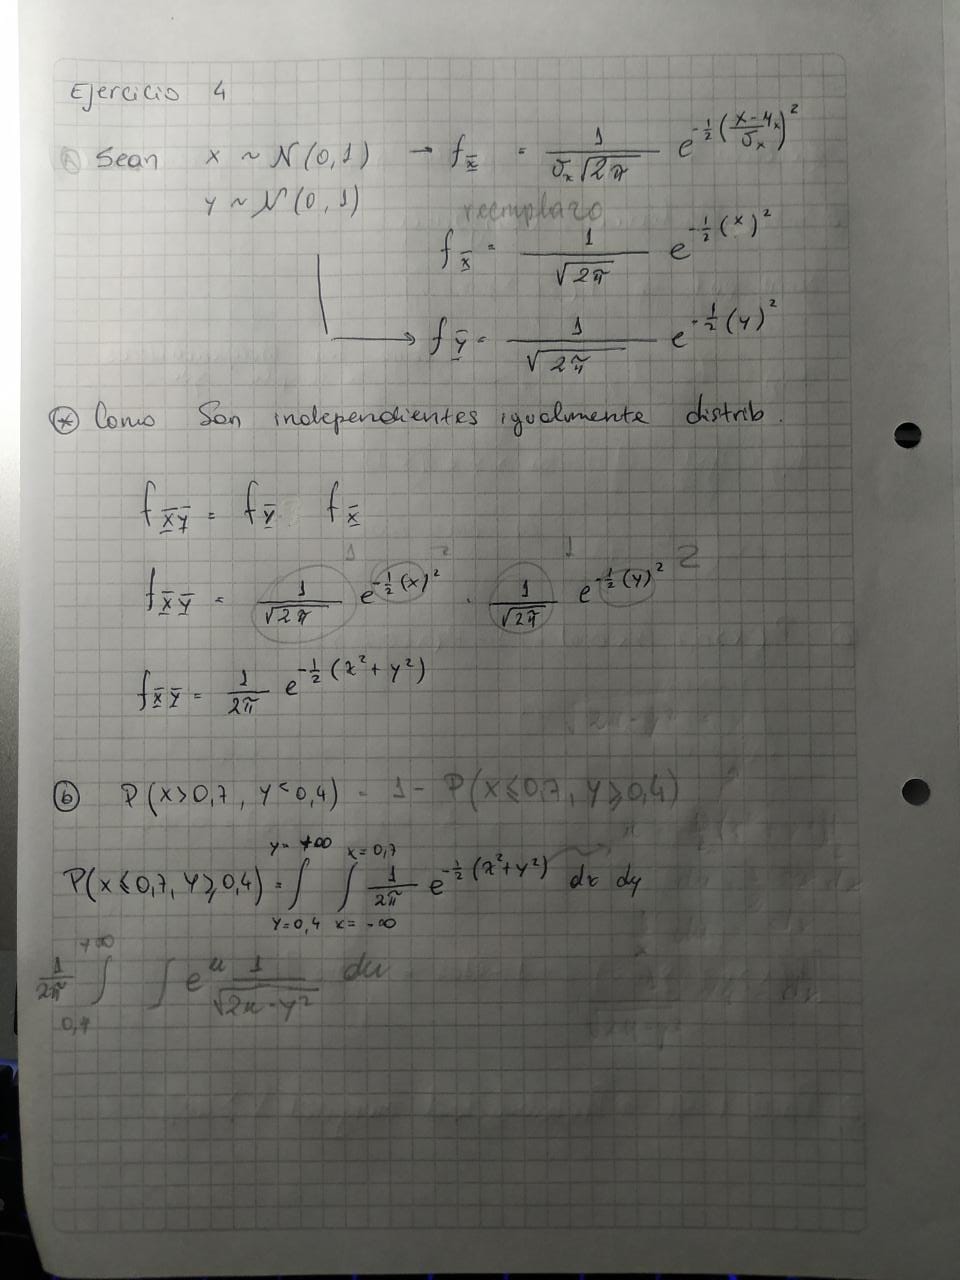 Ejercicio 4
a) Sean x ~ N(0,1) → f_X = 1/(σ_x √(2π)) e^(-1/2 ((x-μ_x)/σ_x)^2)
y ~ N(0,1)
reemplazo
f_X = 1/√(2π) e^(-1/2 (x)^2)
→ f_Y = 1/√(2π) e^(-1/2 (y)^2)
(*) Como Son independientes igualmente distrib.
f_XY = f_Y f_X
f_XY = 1/√(2π) e^(-1/2 (x)^2) · 1/√(2π) e^(-1/2 (y)^2)
f_XY = 1/(2π) e^(-1/2 (x^2 + y^2))
b) P(x>0,7, y<0,4) = 1 - P(x≤0,7, y≥0,4)
P(x≤0,7, y≥0,4) = ∫_(y=0,4)^(y=+∞) ∫_(x=-∞)^(x=0,7) 1/(2π) e^(-1/2 (x^2+y^2)) dx dy
1/(2π) ∫_(0,7)^(+∞) ∫ e^u 1/√(2u-y^2) du